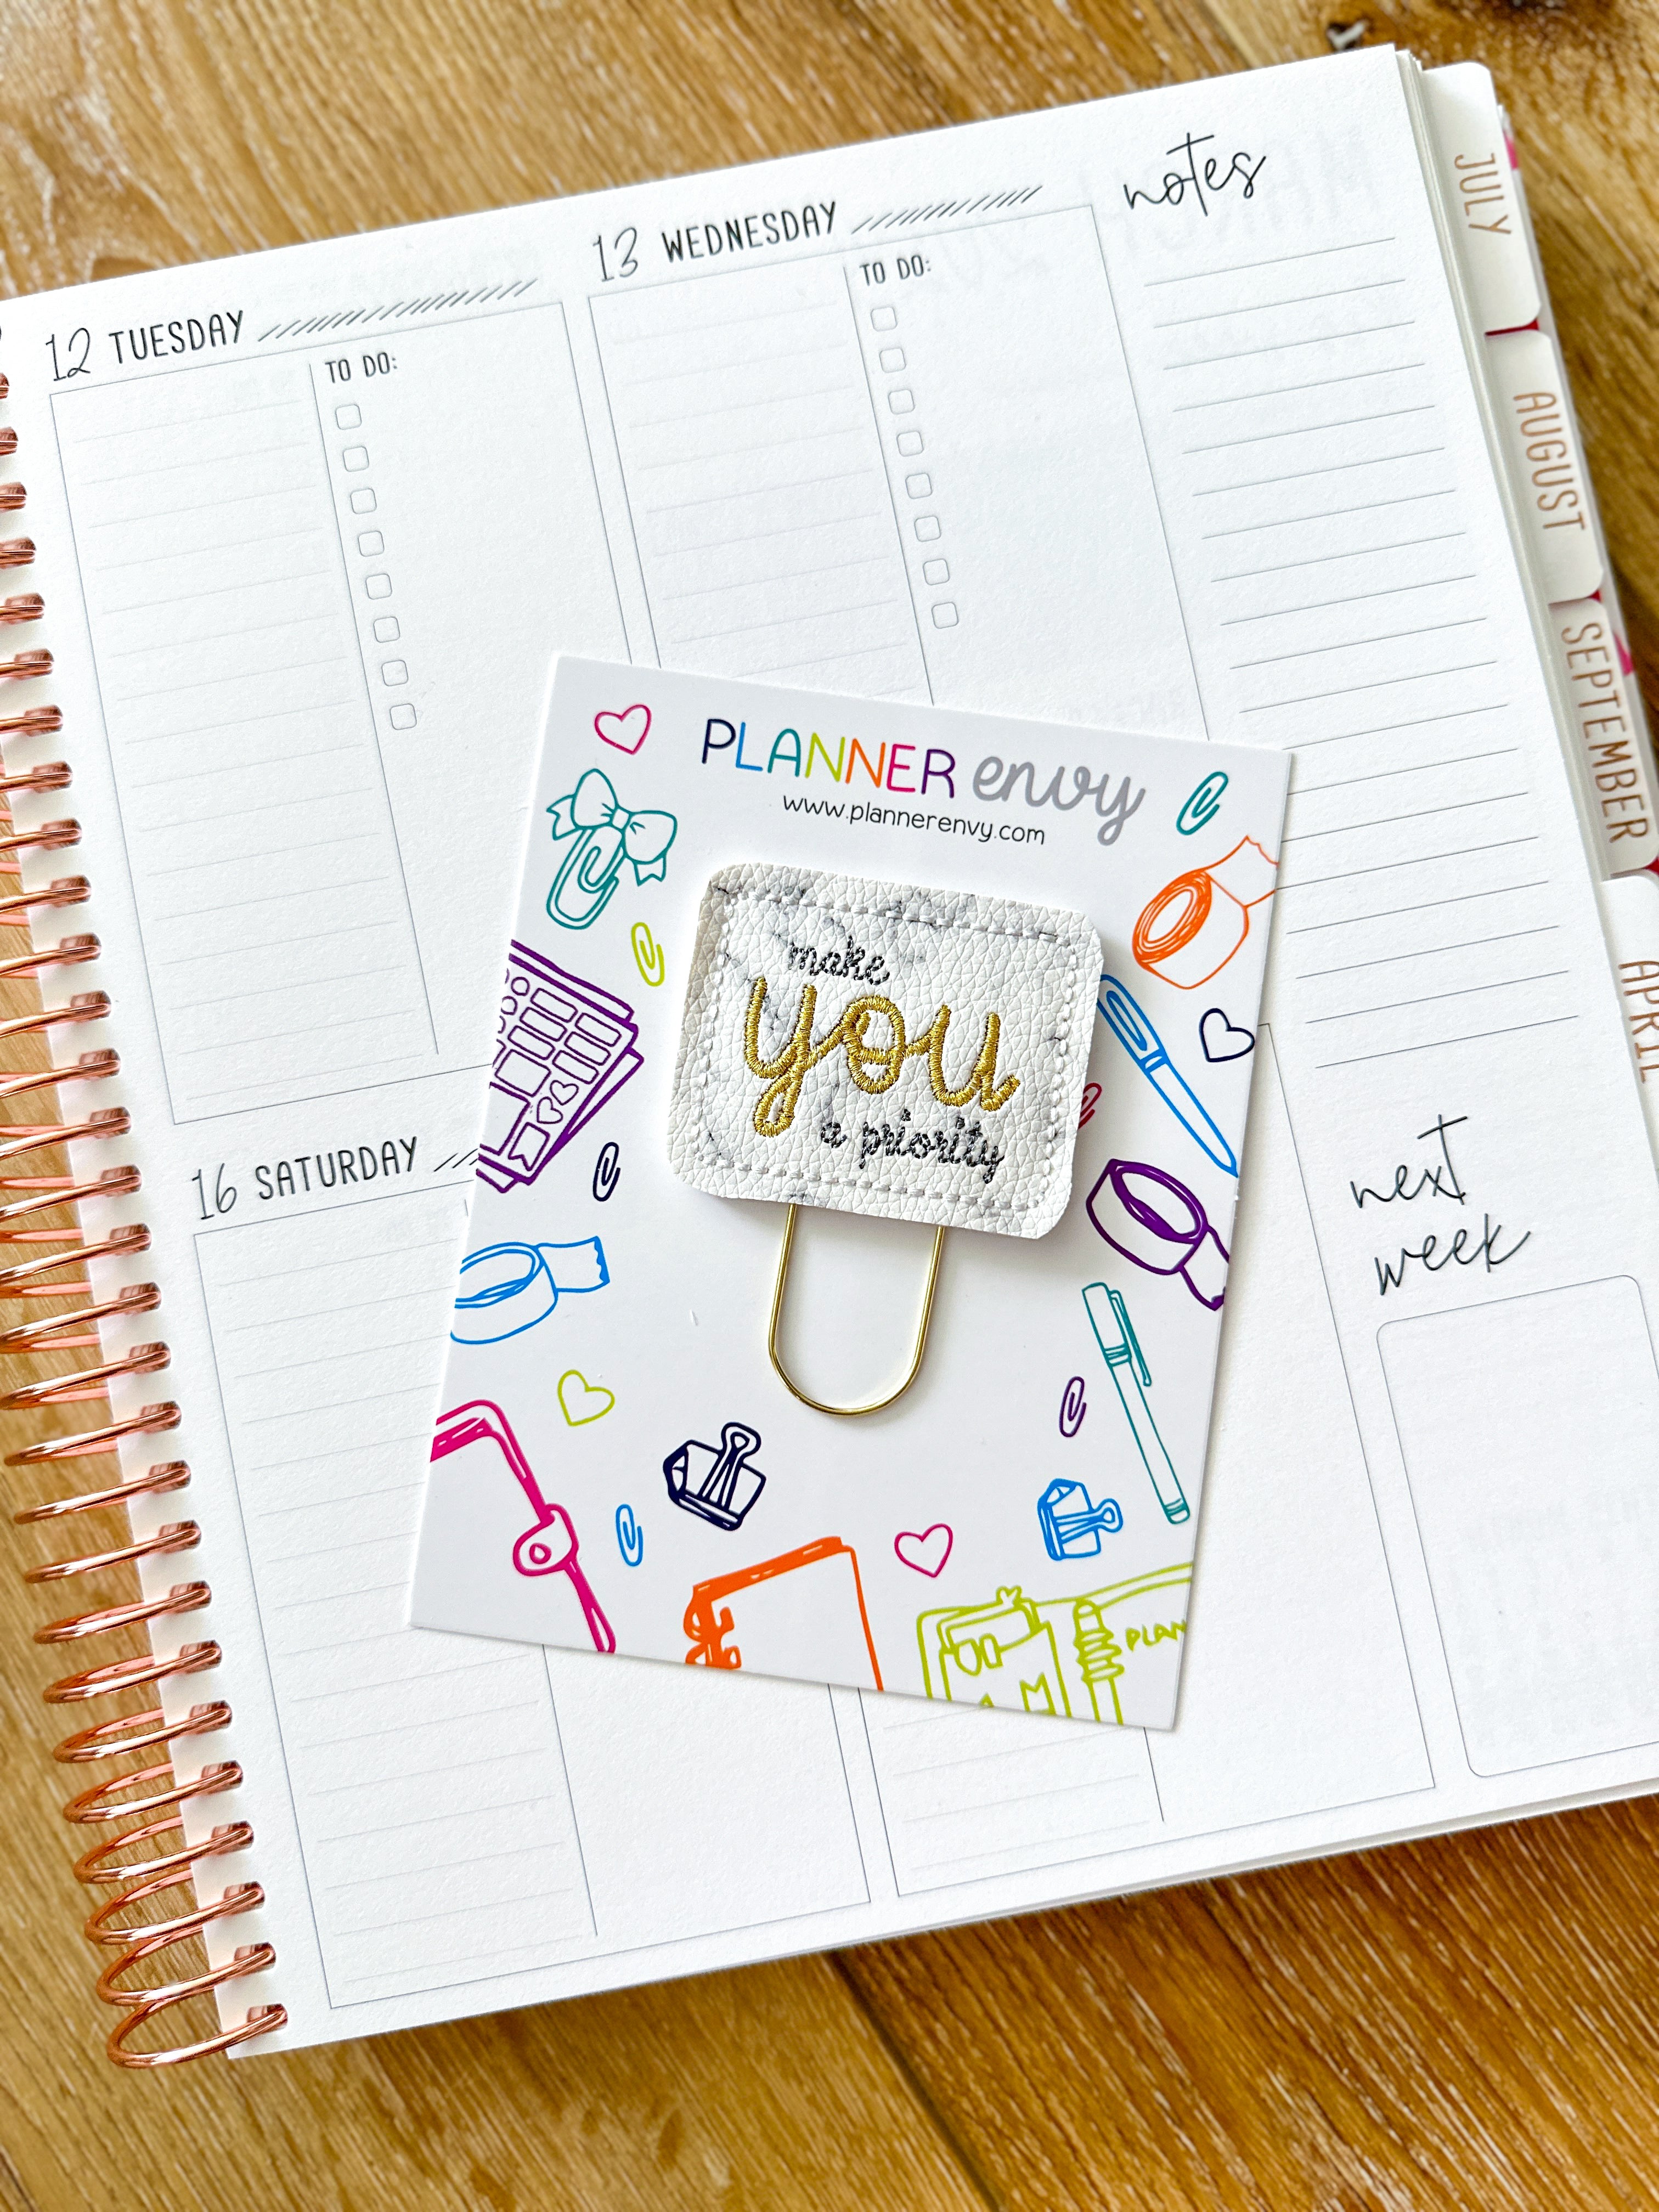 notes
13 WEDNESDAY
TO DO:
12 TUESDAY
TO DO:
JULY
AUGUST
SEPTEMBER
APRIL
PLANNER envy
www.plannerenvy.com
make
you
a priority
16 SATURDAY
next
week
PLAN